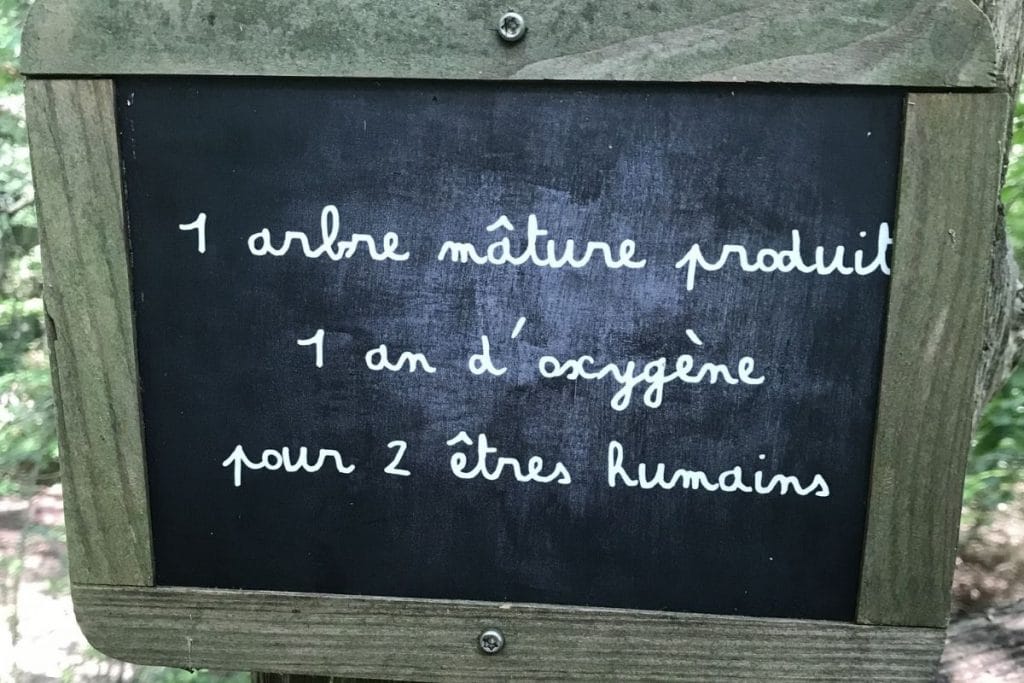 1 arbre mâture produit
1 an d'oxygène
pour 2 êtres humains